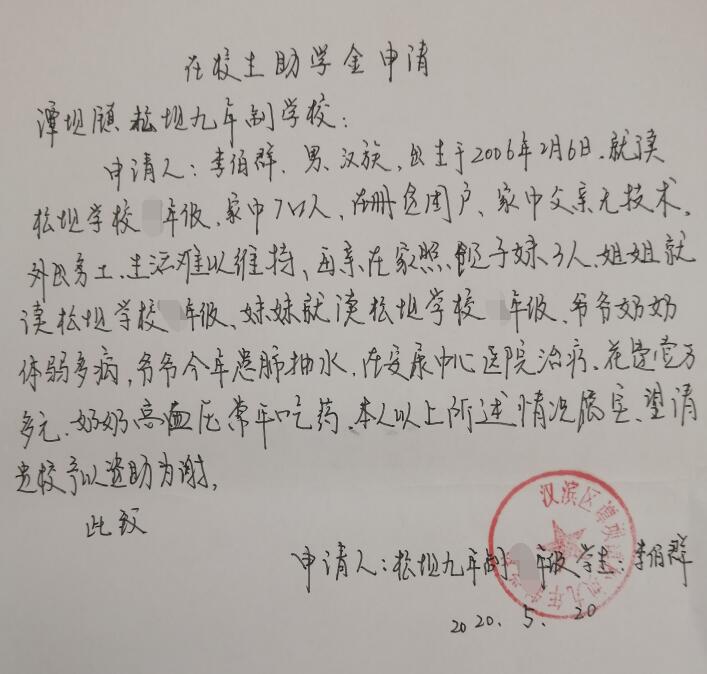 在校生助学金申请
潭坝镇松坝九年制学校:
申请人:李伯群、男、汉族,出生于2006年2月6日.就读
松坝学校年级、家中7口人,在册贫困户、家中父亲无技术。
外出务工、生活难以维持、母亲在家照顾子妹3人、姐姐就
读松坝学校年级、妹妹就读松坝学校年级、爷爷奶奶
体弱多病,爷爷今年患肺抽水,在安康中心医院治疗、花费壹万
多元、奶奶高血压常年吃药、本人以上所述情况属实、望请
贵校予以资助为谢。
此致
汉滨区
申请人:松坝九年制年级学生:李伯群
2020.5.20